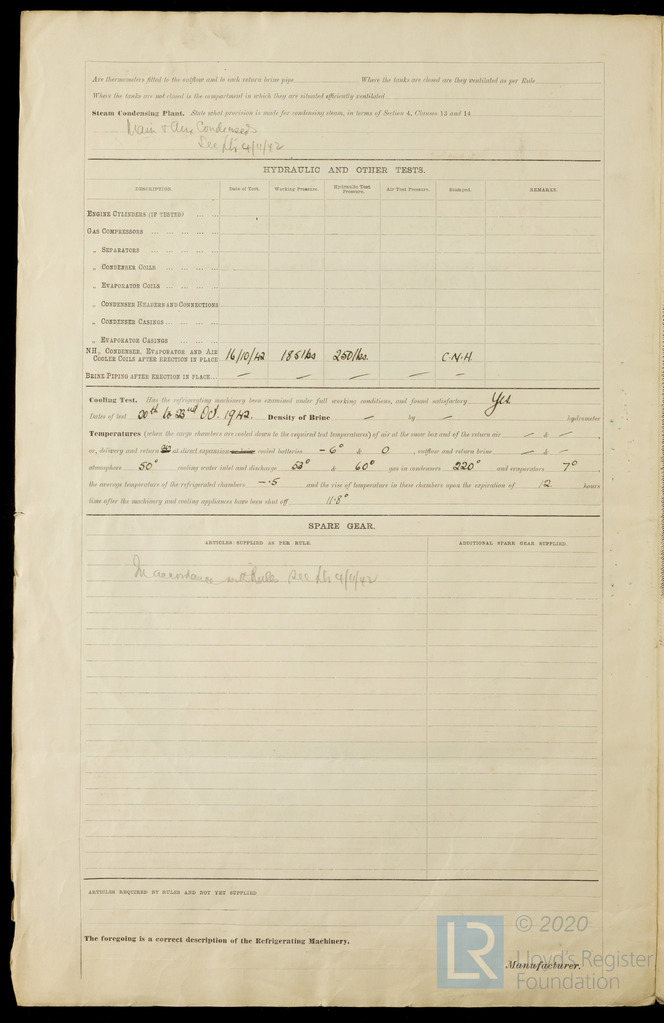 Are thermometers fitted to the outflow and to each return brine pipe Where the tanks are closed are they ventilated as per Rule
Where the tanks are not closed is the compartment in which they are situated efficiently ventilated
Steam Condensing Plant. State what provision is made for condensing steam, in terms of Section 4, Clauses 13 and 14
Main & Aux Condensers
See Ltr 4/11/42
HYDRAULIC AND OTHER TESTS.
DESCRIPTION. Date of Test. Working Pressure. Hydraulic Test Pressure. Air Test Pressure. Stamped. REMARKS.
ENGINE CYLINDERS (IF TESTED) ... ...
GAS COMPRESSORS ... ... ... ... ...
„ SEPARATORS ... ... ... ...
„ CONDENSER COILS ... ... ... ...
„ EVAPORATOR COILS ... ... ... ...
„ CONDENSER HEADERS AND CONNECTIONS
„ CONDENSER CASINGS ... ... ... ...
„ EVAPORATOR CASINGS ... ... ...
NH3 CONDENSER, EVAPORATOR AND AIR
COOLER COILS AFTER ERECTION IN PLACE 16/10/42 185 lbs 250 lbs. — C.N.H.
BRINE PIPING AFTER ERECTION IN PLACE ... — — — — —
Cooling Test. Has the refrigerating machinery been examined under full working conditions, and found satisfactory Yes
Dates of test 20th to 23rd Oct. 1942. Density of Brine — by — hydrometer
Temperatures (when the cargo chambers are cooled down to the required test temperatures) of air at the snow box and of the return air — & — ,
or, delivery and return air at direct expansion cooled batteries — 6° & 0 , outflow and return brine — & — ,
atmosphere 50° cooling water inlet and discharge 53° & 60° gas in condensers 220° and evaporators 7°
the average temperature of the refrigerated chambers —·5 and the rise of temperature in these chambers upon the expiration of 12 hours
time after the machinery and cooling appliances have been shut off 11·8°
SPARE GEAR.
ARTICLES SUPPLIED AS PER RULE. ADDITIONAL SPARE GEAR SUPPLIED.
In accordance with Rules see Ltr 4/11/42
ARTICLES REQUIRED BY RULES AND NOT YET SUPPLIED
The foregoing is a correct description of the Refrigerating Machinery.
Manufacturer.
LR © 2020
Lloyd's Register
Foundation